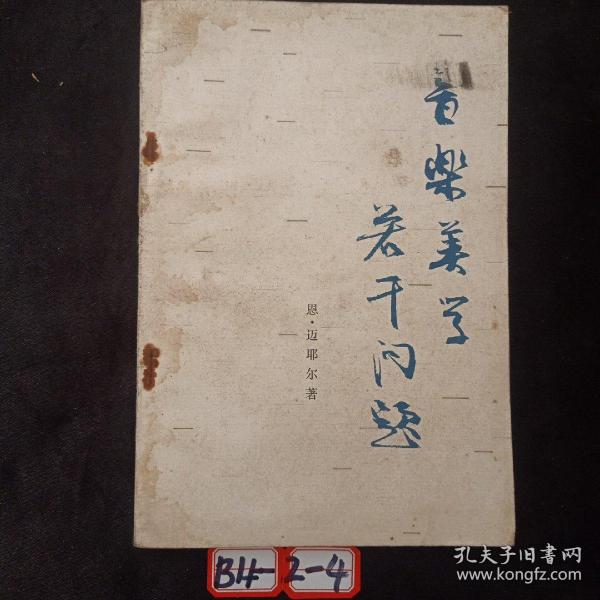 音樂美学
若干问题
恩·迈耶尔著
B11-2-4
孔夫子旧書网
www.kongfz.com